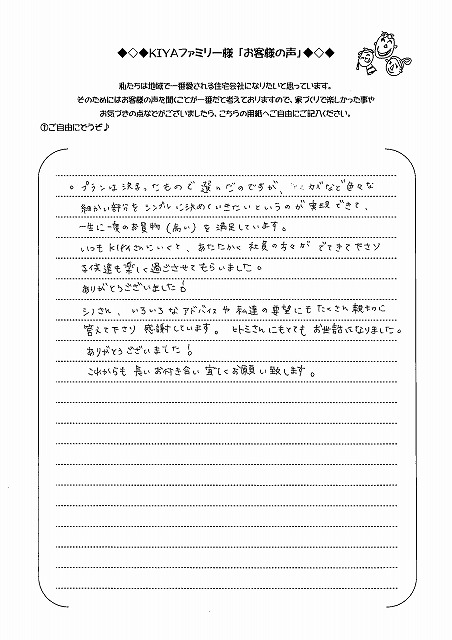 ◆◇◆KIYAファミリー様「お客様の声」◆◇◆
私たちは地域で一番愛される住宅会社になりたいと思っています。
そのためにはお客様の声を聞くことが一番だと考えておりますので、家づくりで楽しかった事や
お気づきの点などがございましたら、こちらの用紙へご自由にご記入ください。
①ご自由にどうぞ♪
。プランは決まったもので選んだのですが、など色々な
細かい部分をシンプルに決めていきたいというのが実現できて、
一生に一度のお買物(高い)を満足しています。
いつもKIYAさんにいくと、あたたかく社員の方々がでてきて下さり
子供達も楽しく過ごさせてもらいました。
ありがとうございました!
シノさん、いろいろなアドバイスや私達の要望にもたくさん親切に
答えて下さり感謝しています。ヒトミさんにもとてもお世話になりました。
ありがとうございました!
これからも長いお付き合い宜しくお願い致します。